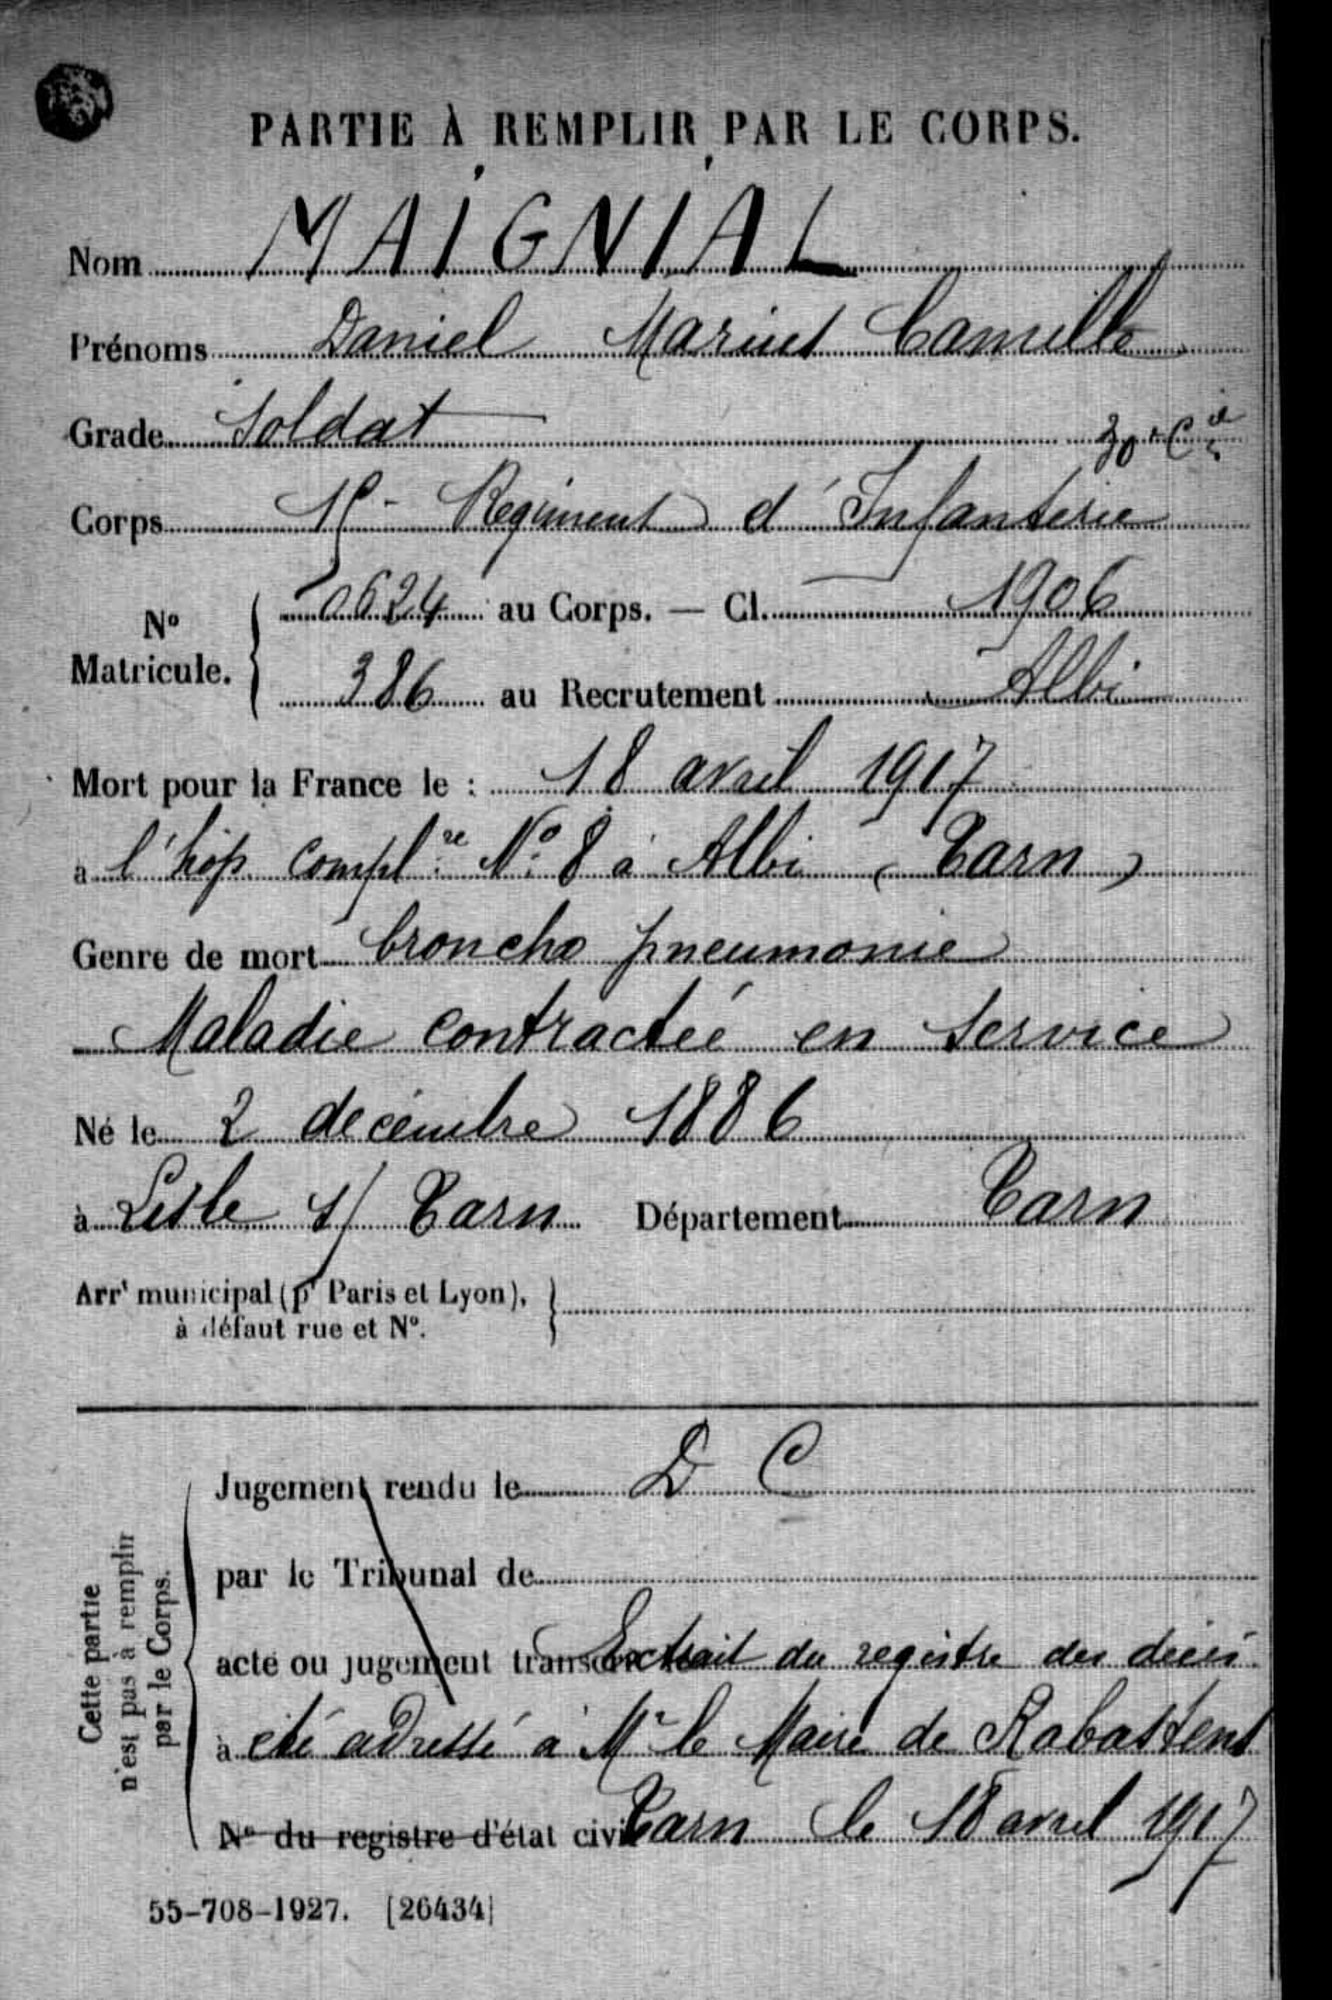 PARTIE À REMPLIR PAR LE CORPS.
Nom MAIGNIAL
Prénoms Daniel Marius Camille
Grade Soldat 30e Cie
Corps 15e Régiment d'Infanterie
No Matricule. 0624 au Corps. — Cl. 1906
386 au Recrutement Albi
Mort pour la France le : 18 avril 1917
a l'hôp. complre No 8 à Albi (Tarn)
Genre de mort broncho pneumonie
Maladie contractée en service
Né le 2 décembre 1886
à Lisle s/ Tarn Département Tarn
Arrt municipal (pr Paris et Lyon),
à défaut rue et No.
Jugement rendu le D C
par le Tribunal de
acte ou jugement Extrait du registre des décès
à été adressé à Mr le Maire de Rabastens
No du registre d'état civil Tarn le 18 avril 1917
Cette partie
n'est pas à remplir
par le Corps.
55-708-1927. [26434]